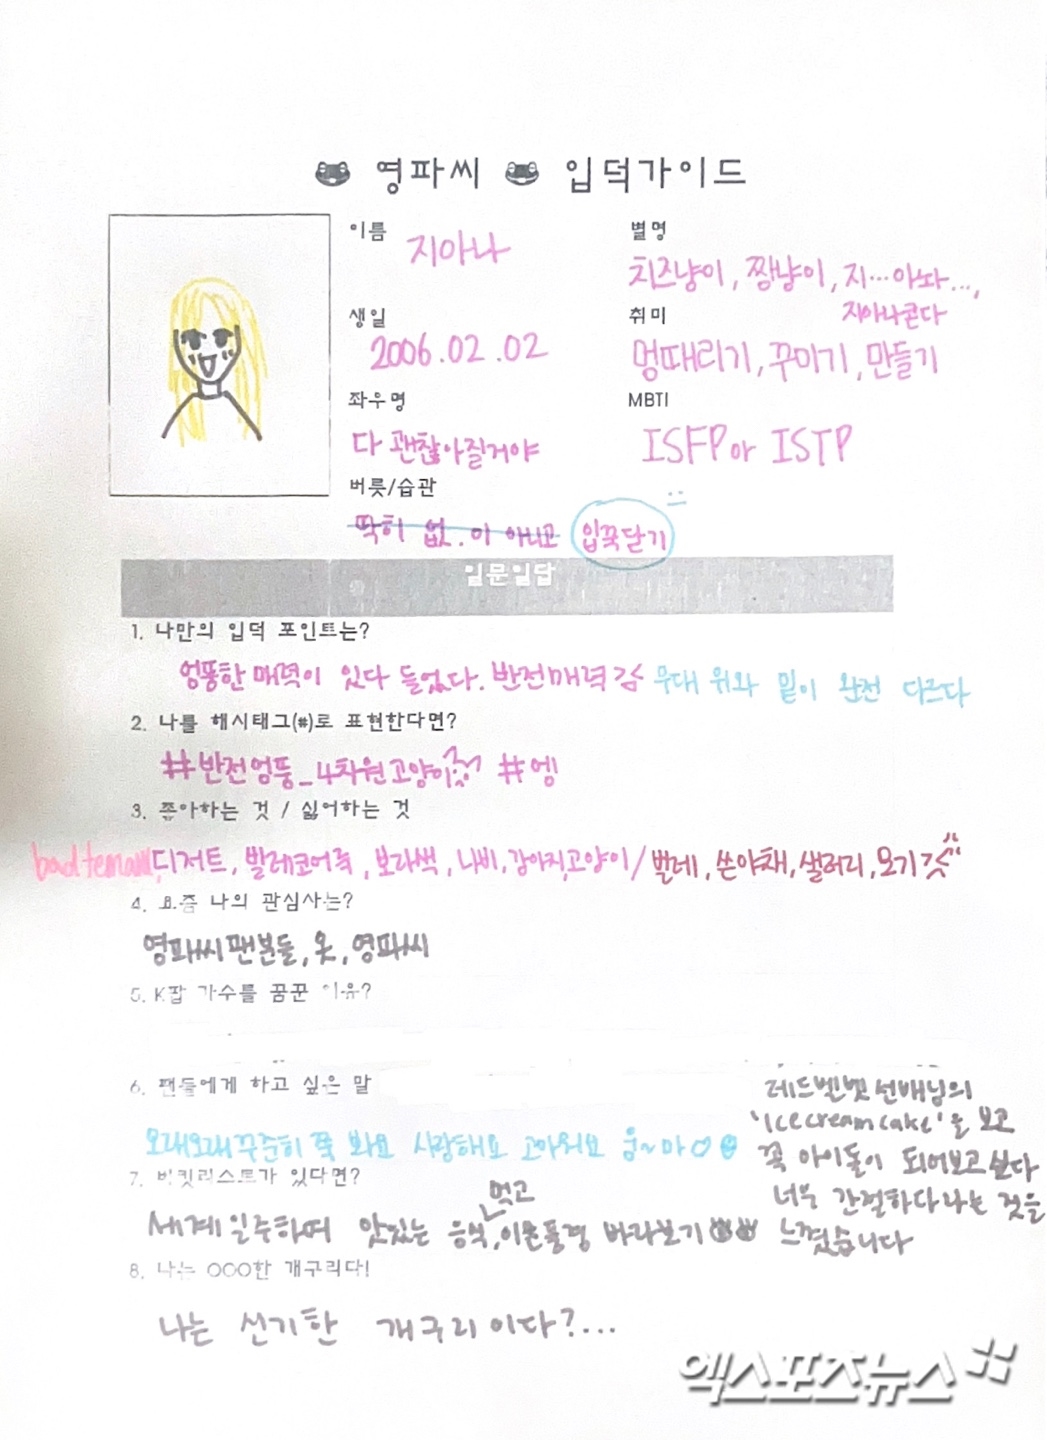 영파씨 입덕가이드
이름
지아나
별명
치즈냥이, 짱냥이, 지…아놔…,
지아나콘다
생일
2006.02.02
취미
멍때리기, 꾸미기, 만들기
좌우명
다 괜찮아질거야
MBTI
ISFP or ISTP
버릇/습관
딱히 없.이 아니고 입꾹닫기
일문일답
1. 나만의 입덕 포인트는?
엉뚱한 매력이 있다 들었다. 반전매력감 무대 위와 밑이 완전 다르다
2. 나를 해시태그(#)로 표현한다면?
#반전엉뚱_4차원고양이 #엥
3. 좋아하는 것 / 싫어하는 것
디저트, 발레코어룩, 보라색, 나비, 강아지,고양이 / 벌레, 쓴야채, 샐러리, 모기
4. 요즘 나의 관심사는?
영파씨팬분들, 옷, 영파씨
5. K팝 가수를 꿈꾼 이유?
레드벨벳 선배님의
'Ice cream cake'을 보고
꼭 아이돌이 되어보고싶다
너무 간절하다 나는 것을
느꼈습니다
6. 팬들에게 하고 싶은 말
오래오래 꾸준히 쭉 봐요 사랑해요 고마워요 움~마♡
7. 버킷리스트가 있다면?
세계일주하며 맛있는 음식 먹고, 이쁜풍경 바라보기
8. 나는 OOO한 개구리다!
나는 신기한 개구리이다?...
엑스포츠뉴스